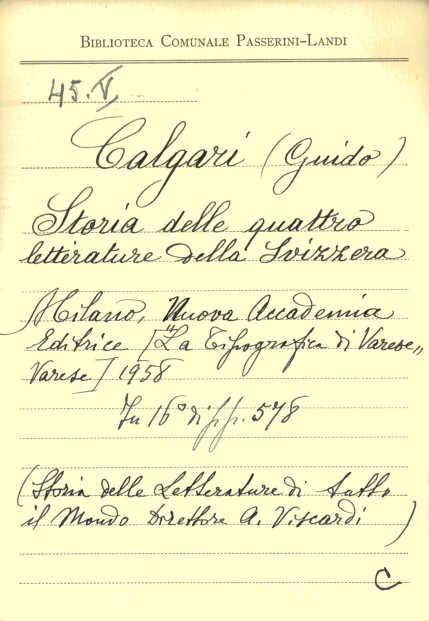 BIBLIOTECA COMUNALE PASSERINI-LANDI
45. V,
Calgari (Guido)
Storia delle quattro
letterature della Svizzera
Milano, Nuova Accademia
Editrice ["La Tipografica di Varese„
Varese] 1958
In 16° di pp. 578
(Storia delle Letterature di tutto
il Mondo Direttore A. Viscardi)
C